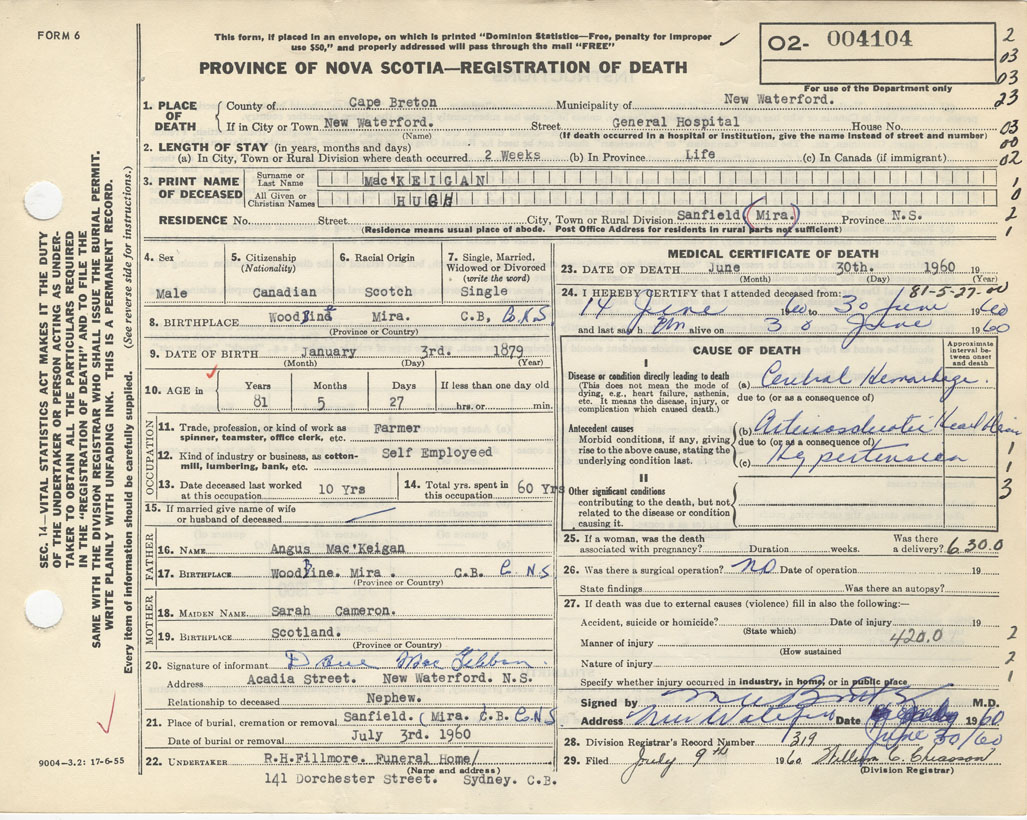 FORM 6
This form, if placed in an envelope, on which is printed "Dominion Statistics—Free, penalty for improper
use $50," and properly addressed will pass through the mail "FREE"
O2- 004104
For use of the Department only
2
03
03
23
03
00
02
1
0
2
1
PROVINCE OF NOVA SCOTIA—REGISTRATION OF DEATH
1. PLACE OF DEATH
County of Cape Breton Municipality of New Waterford.
If in City or Town New Waterford. Street General Hospital House No.
(Name) (If death occurred in a hospital or institution, give the name instead of street and number)
2. LENGTH OF STAY (in years, months and days)
(a) In City, Town or Rural Division where death occurred 2 Weeks (b) In Province Life (c) In Canada (if immigrant)
3. PRINT NAME OF DECEASED
Surname or Last Name Mac'KEIGAN
All Given or Christian Names HUGH
RESIDENCE No. Street City, Town or Rural Division Sanfield (Mira.) Province N.S.
(Residence means usual place of abode. Post Office Address for residents in rural parts not sufficient)
4. Sex Male
5. Citizenship (Nationality) Canadian
6. Racial Origin Scotch
7. Single, Married, Widowed or Divorced (write the word) Single
8. BIRTHPLACE Woodbine Mira. C.B, C.N.S
(Province or Country)
9. DATE OF BIRTH January 3rd. 1879
(Month) (Day) (Year)
10. AGE in Years 81 Months 5 Days 27 If less than one day old hrs. or min.
OCCUPATION
11. Trade, profession, or kind of work as spinner, teamster, office clerk, etc. Farmer
12. Kind of industry or business, as cotton-mill, lumbering, bank, etc. Self Employeed
13. Date deceased last worked at this occupation 10 Yrs
14. Total yrs. spent in this occupation 60 Yrs
15. If married give name of wife or husband of deceased
FATHER
16. NAME Angus Mac'Keigan
17. BIRTHPLACE Woodbine. Mira . C.B. C. N.S
(Province or Country)
MOTHER
18. MAIDEN NAME Sarah Cameron.
19. BIRTHPLACE Scotland.
(Province or Country)
20. Signature of informant Dave MacGibbon.
Address Acadia Street. New Waterford. N.S.
Relationship to deceased Nephew.
21. Place of burial, cremation or removal Sanfield. (Mira. C.B. C.N.S
Date of burial or removal July 3rd. 1960
22. UNDERTAKER R.H.Fillmore. Funeral Home/
(Name and address)
141 Dorchester Street. Sydney. C.B.
MEDICAL CERTIFICATE OF DEATH
23. DATE OF DEATH June 30th. 1960 19
(Month) (Day) (Year)
81-5-27-00
24. I HEREBY CERTIFY that I attended deceased from:
14 June 1960 to 30 June 1960
and last saw h im alive on 30 June 1960
CAUSE OF DEATH
Approximate interval between onset and death
I
Disease or condition directly leading to death
(This does not mean the mode of dying, e.g., heart failure, asthenia, etc. It means the disease, injury, or complication which caused death.)
(a) Cerebral Hemorrhage.
due to (or as a consequence of)
Antecedent causes
Morbid conditions, if any, giving rise to the above cause, stating the underlying condition last.
(b) Arteriosclerotic Heart
due to (or as a consequence of)
(c) Hypertension
1
1
3
II
Other significant conditions
contributing to the death, but not related to the disease or condition causing it.
25. If a woman, was the death associated with pregnancy? Duration weeks. Was there a delivery? 6.30.0
26. Was there a surgical operation? no Date of operation 19
State findings Was there an autopsy?
27. If death was due to external causes (violence) fill in also the following:—
Accident, suicide or homicide? Date of injury 19
(State which)
Manner of injury 420.0 2
(How sustained
Nature of injury 2
Specify whether injury occurred in industry, in home, or in public place 1
Signed by M.D.
Address New Waterford Date 1960
June 30/60
28. Division Registrar's Record Number 319
29. Filed July 9th 1960
(Division Registrar)
SEC. 14—VITAL STATISTICS ACT MAKES IT THE DUTY
OF THE UNDERTAKER OR PERSON ACTING AS UNDER-
TAKER TO OBTAIN ALL THE PARTICULARS REQUIRED
IN THE "REGISTRATION OF DEATH" AND TO FILE THE
SAME WITH THE DIVISION REGISTRAR WHO SHALL ISSUE THE BURIAL PERMIT.
WRITE PLAINLY WITH UNFADING INK. THIS IS A PERMANENT RECORD.
Every item of information should be carefully supplied. (See reverse side for instructions.)
9004—3.2: 17-6-55